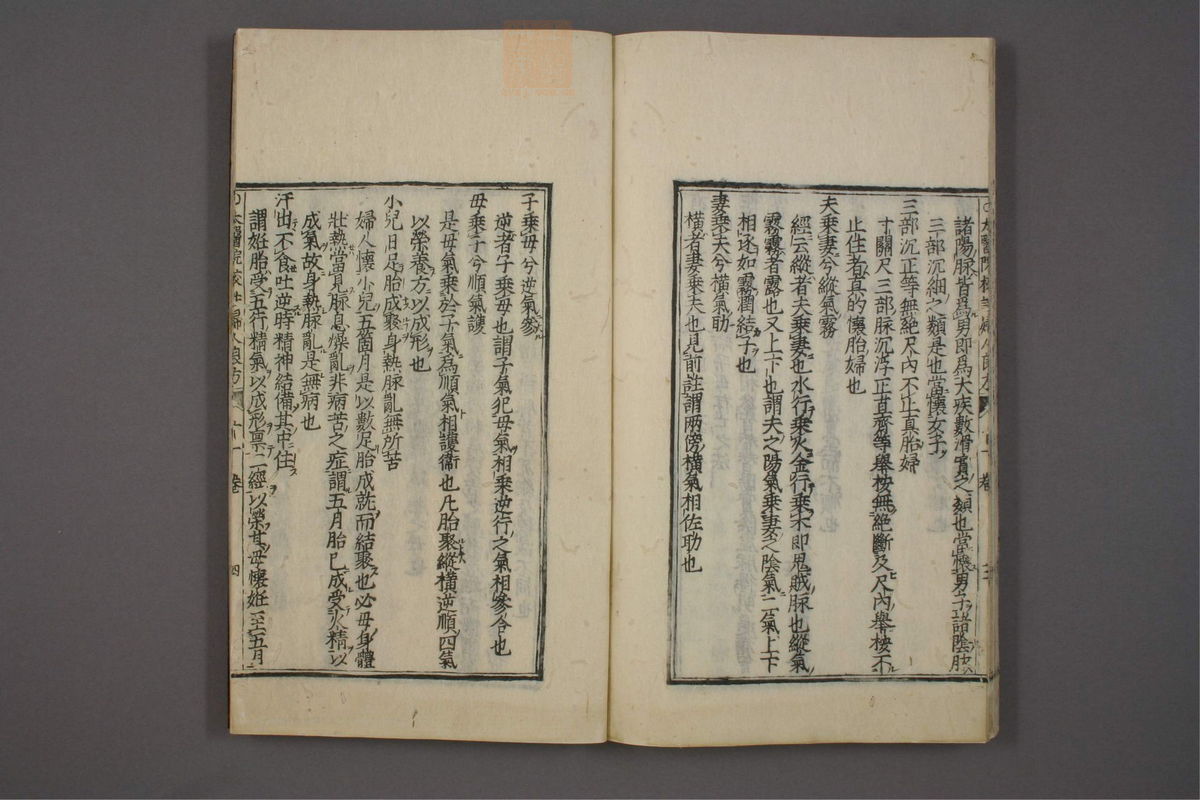 諸陽脉皆爲男即爲大疾數滑實之類也當懷男子諸陰脉
三部沉細之類是也當懷女子
三部沉正等無絶尺內不止真胎婦
寸關尺三部脉沉浮正直齊等舉按無絶斷及尺內舉按不
止住者真的懷胎婦也
夫乘妻兮縱氣霧
經云縱者夫乘妻也水行乘火金行乘木即鬼賊脉也縱氣
霧霧者露也又上下也謂夫之陽氣乘妻之陰氣二氣上下
相逐如霧潤結子也
妻乘夫兮橫氣助
橫者妻乘夫也見前註謂兩傍橫氣相佐助也
子乘母兮逆氣參
逆者子乘母也謂子氣犯母氣相乘逆行之氣相參合也
母乘子兮順氣護
是母氣乘於子氣爲順氣相護衞也凡胎聚縱橫逆順四氣
以榮養方以成形也
小兒日足胎成聚身熱脉亂無所苦
婦人懷小兒五箇月是以數足胎成就而結聚也必母身體
壯熱當見脉息燥亂非病苦之症謂五月胎已成受火精以
成氣故身熱脉亂是無病也
汗出不食吐逆時精神結備其中住
謂姙胎受五行精氣以成形禀二經以榮其母懷姙至五月
太醫院校 婦人良方 卷 四